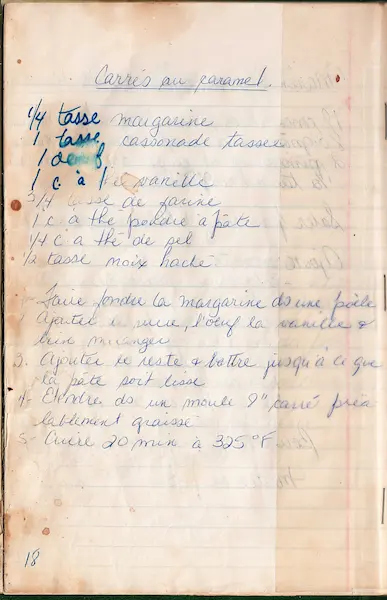 Carrés au caramel.
1/4 tasse margarine
1 tasse cassonade tassée
1 oeuf
1 c. à vanille
3/4 tasse de farine
1 c à thé poudre à pâte
1/4 c à thé de sel
1/2 tasse noix haché
Faire fondre la margarine ds une poêle
Ajouter le sucre, l'oeuf la vanille &
bien mélanger
3. Ajouter le reste & battre jusqu'à ce que
la pâte soit lisse
4- Etendre ds un moule 9" carré préa
lablement graissé
5- Cuire 20 min à 325°F
18